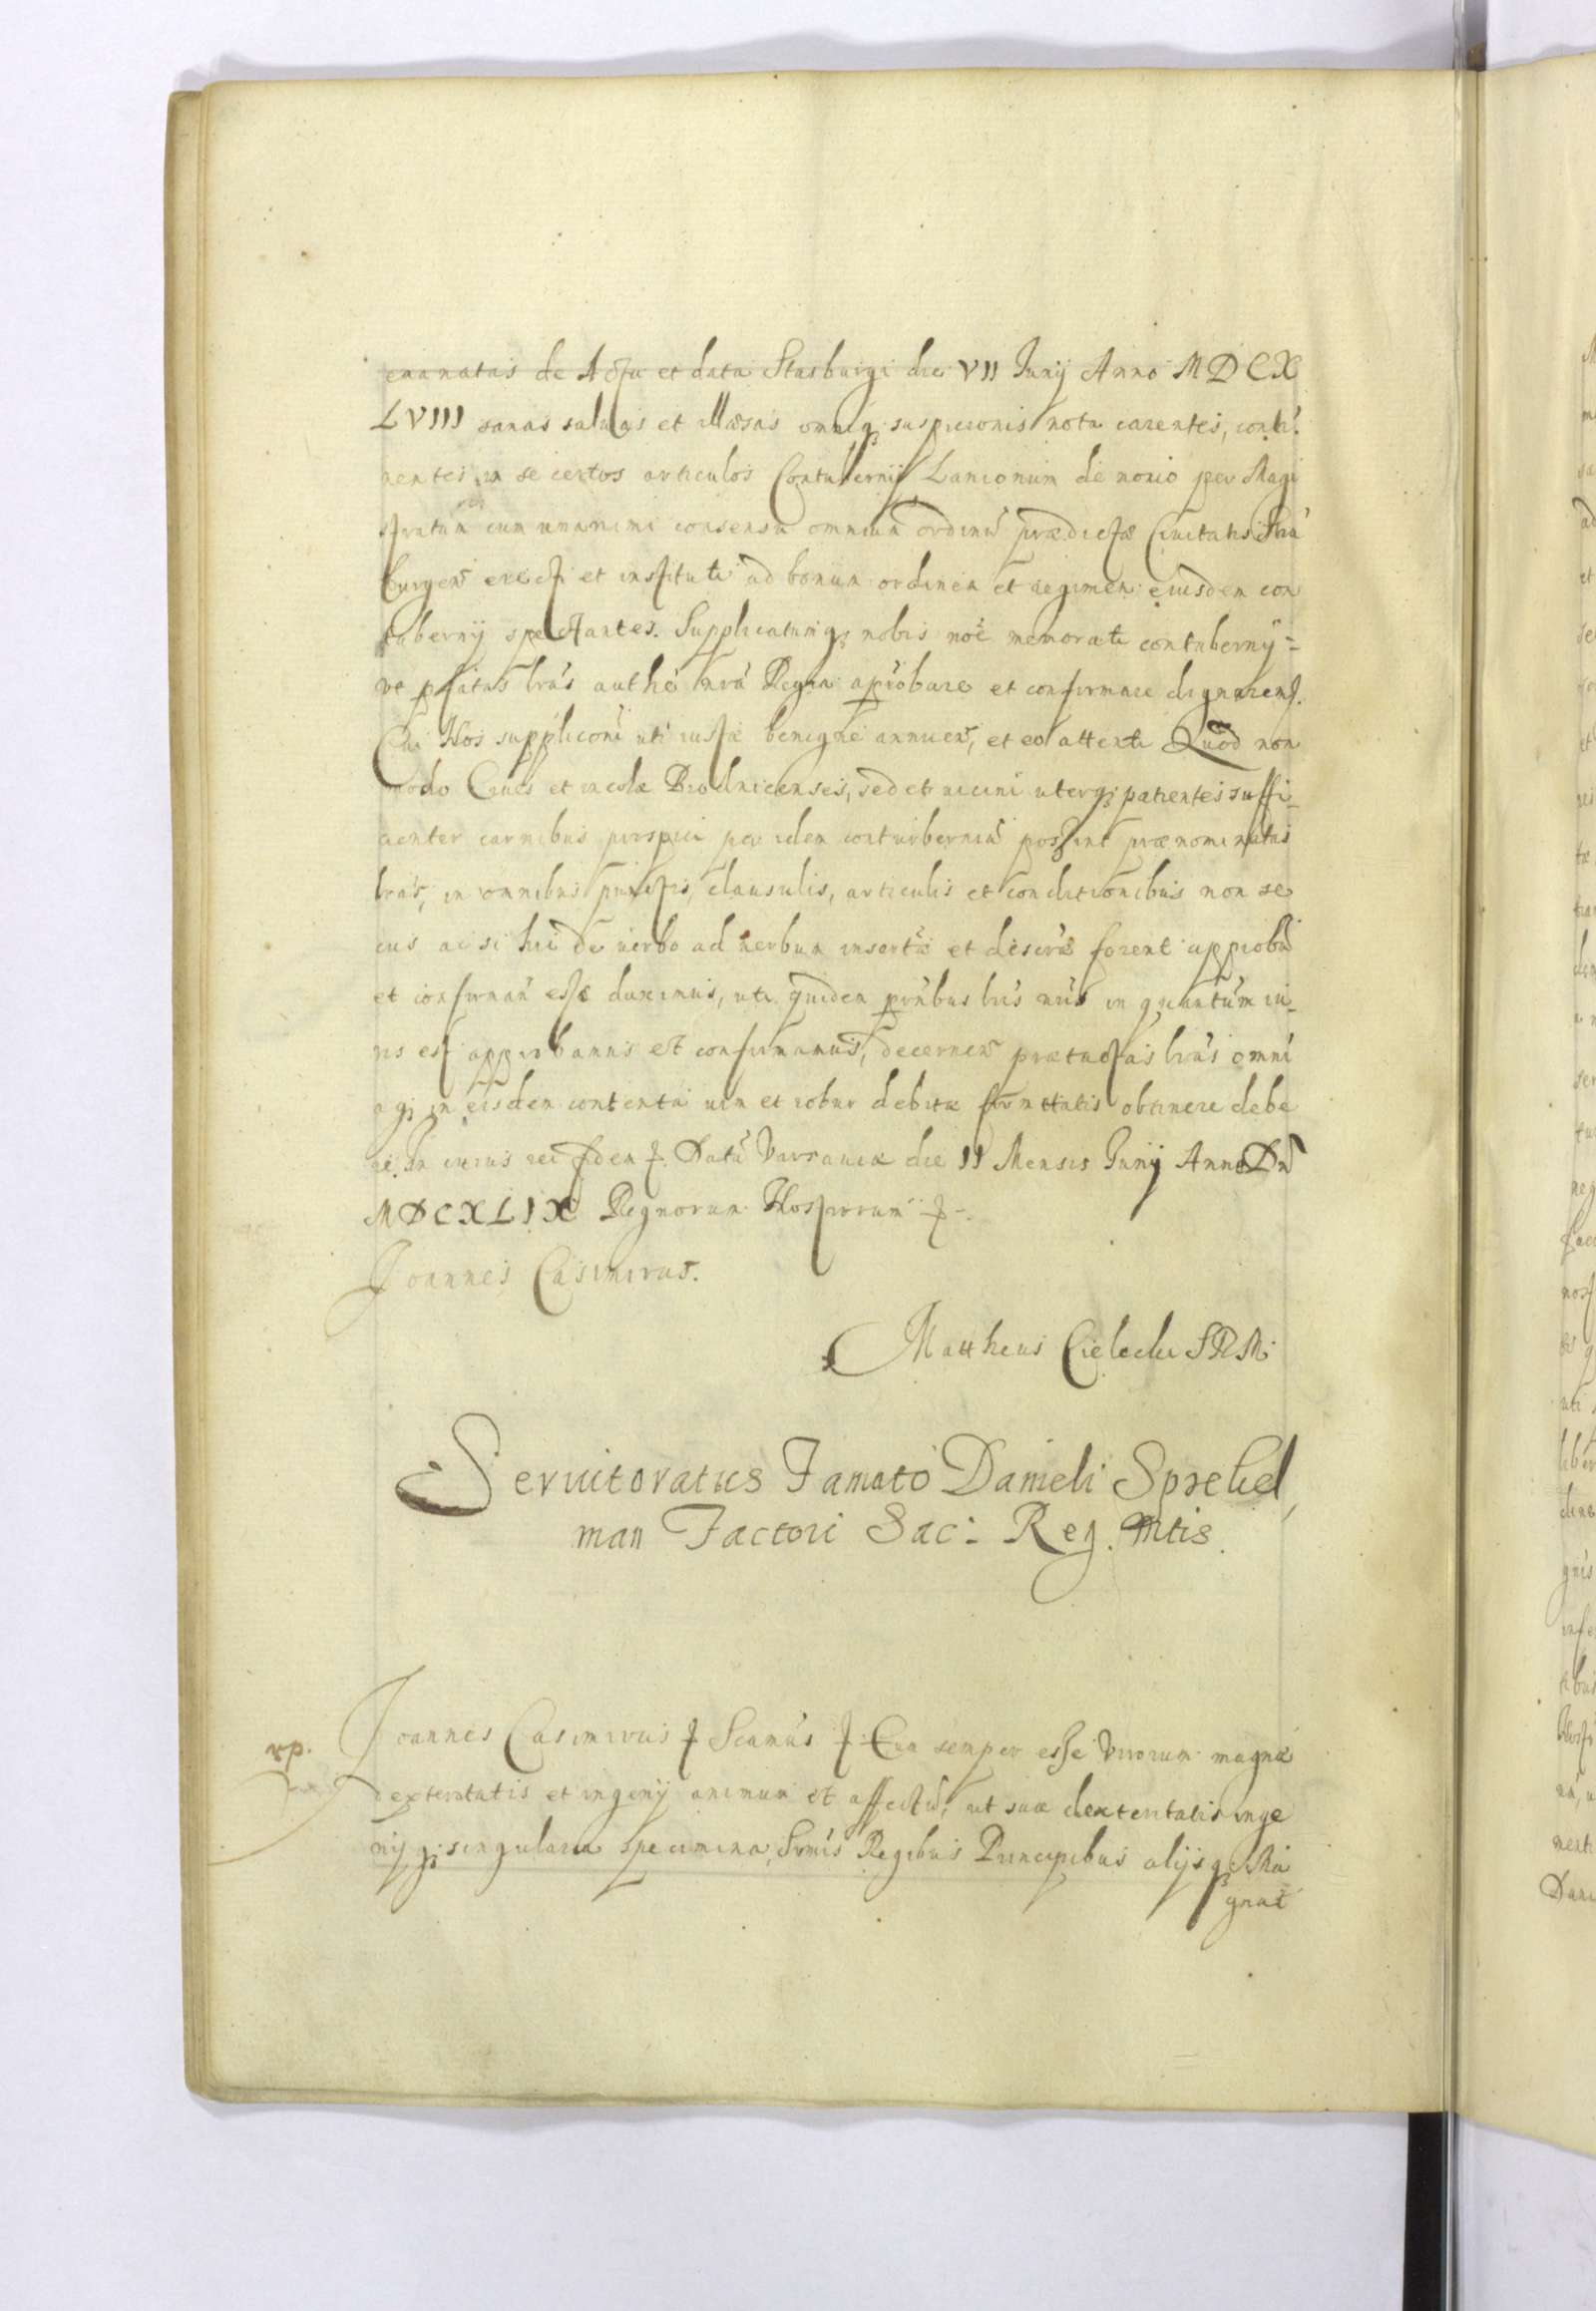 emanatas de Actu et data Strasburgi die VII Junij Anno MDCX
LVIII sanas saluas et illæsas omniq; suspicionis nota carentes, conti
nentes in se certos articulos Contubernij Lanionum de nouo per Magi
stratum cum unanimi consensu omnium ordinũ prædictæ Ciuitatis Stras
burgeñ erecti et instituti ad bonum ordinem et regimen eiusdem con
tubernij spectantes. Supplicatumq; nobis noĩe memorati contubernij
vt p̃fatas lr̃as authẽ nr̃a Regia aprobare et confirmare dignaremr.
Cui Nos supplicõni uti iustæ benigne annueñ, et eo attento Quod non
modo Ciues et incolæ Brodnicenses, sed et uicini uterq; patientes suffi
cienter carnibus prospici per idem contuberniũ possint prænominatas
lr̃as, in omnibus punctis, clausulis, articulis et conditionibus non se
cus ac si hic de uerbo ad uerbum insertæ et descr̃æ forent approbã
et confirmañ esse duximus, uti quidem pñtibus lr̃is nr̃is in quantum iu
ris est approbamus et confirmamus, decerneñ prætactas lr̃as omni
aq; in eisdem contenta uim et robur debitæ firmitatis obtinere debe
re. In cuius rei fidem f. Datũ Varsauiæ die II Mensis Junij Anno Dñi
MDCXLIX Regnorum Nostrorum f.
Joannes Casimirus.
Mattheus Cielecki SRM
Seruitoratus Famato Danieli Sprehel,
man Factori Sac: Reg. Mtis.
rp.
Joannes Casimirus f Scimus f Eum semper esse Virorum magnæ
dexteritatis et ingenij animum et affectũ, ut suæ dexteritatis inge
nijq; singularia specimina, Srmis Regibus Principibus alijsq; Ma
gnat